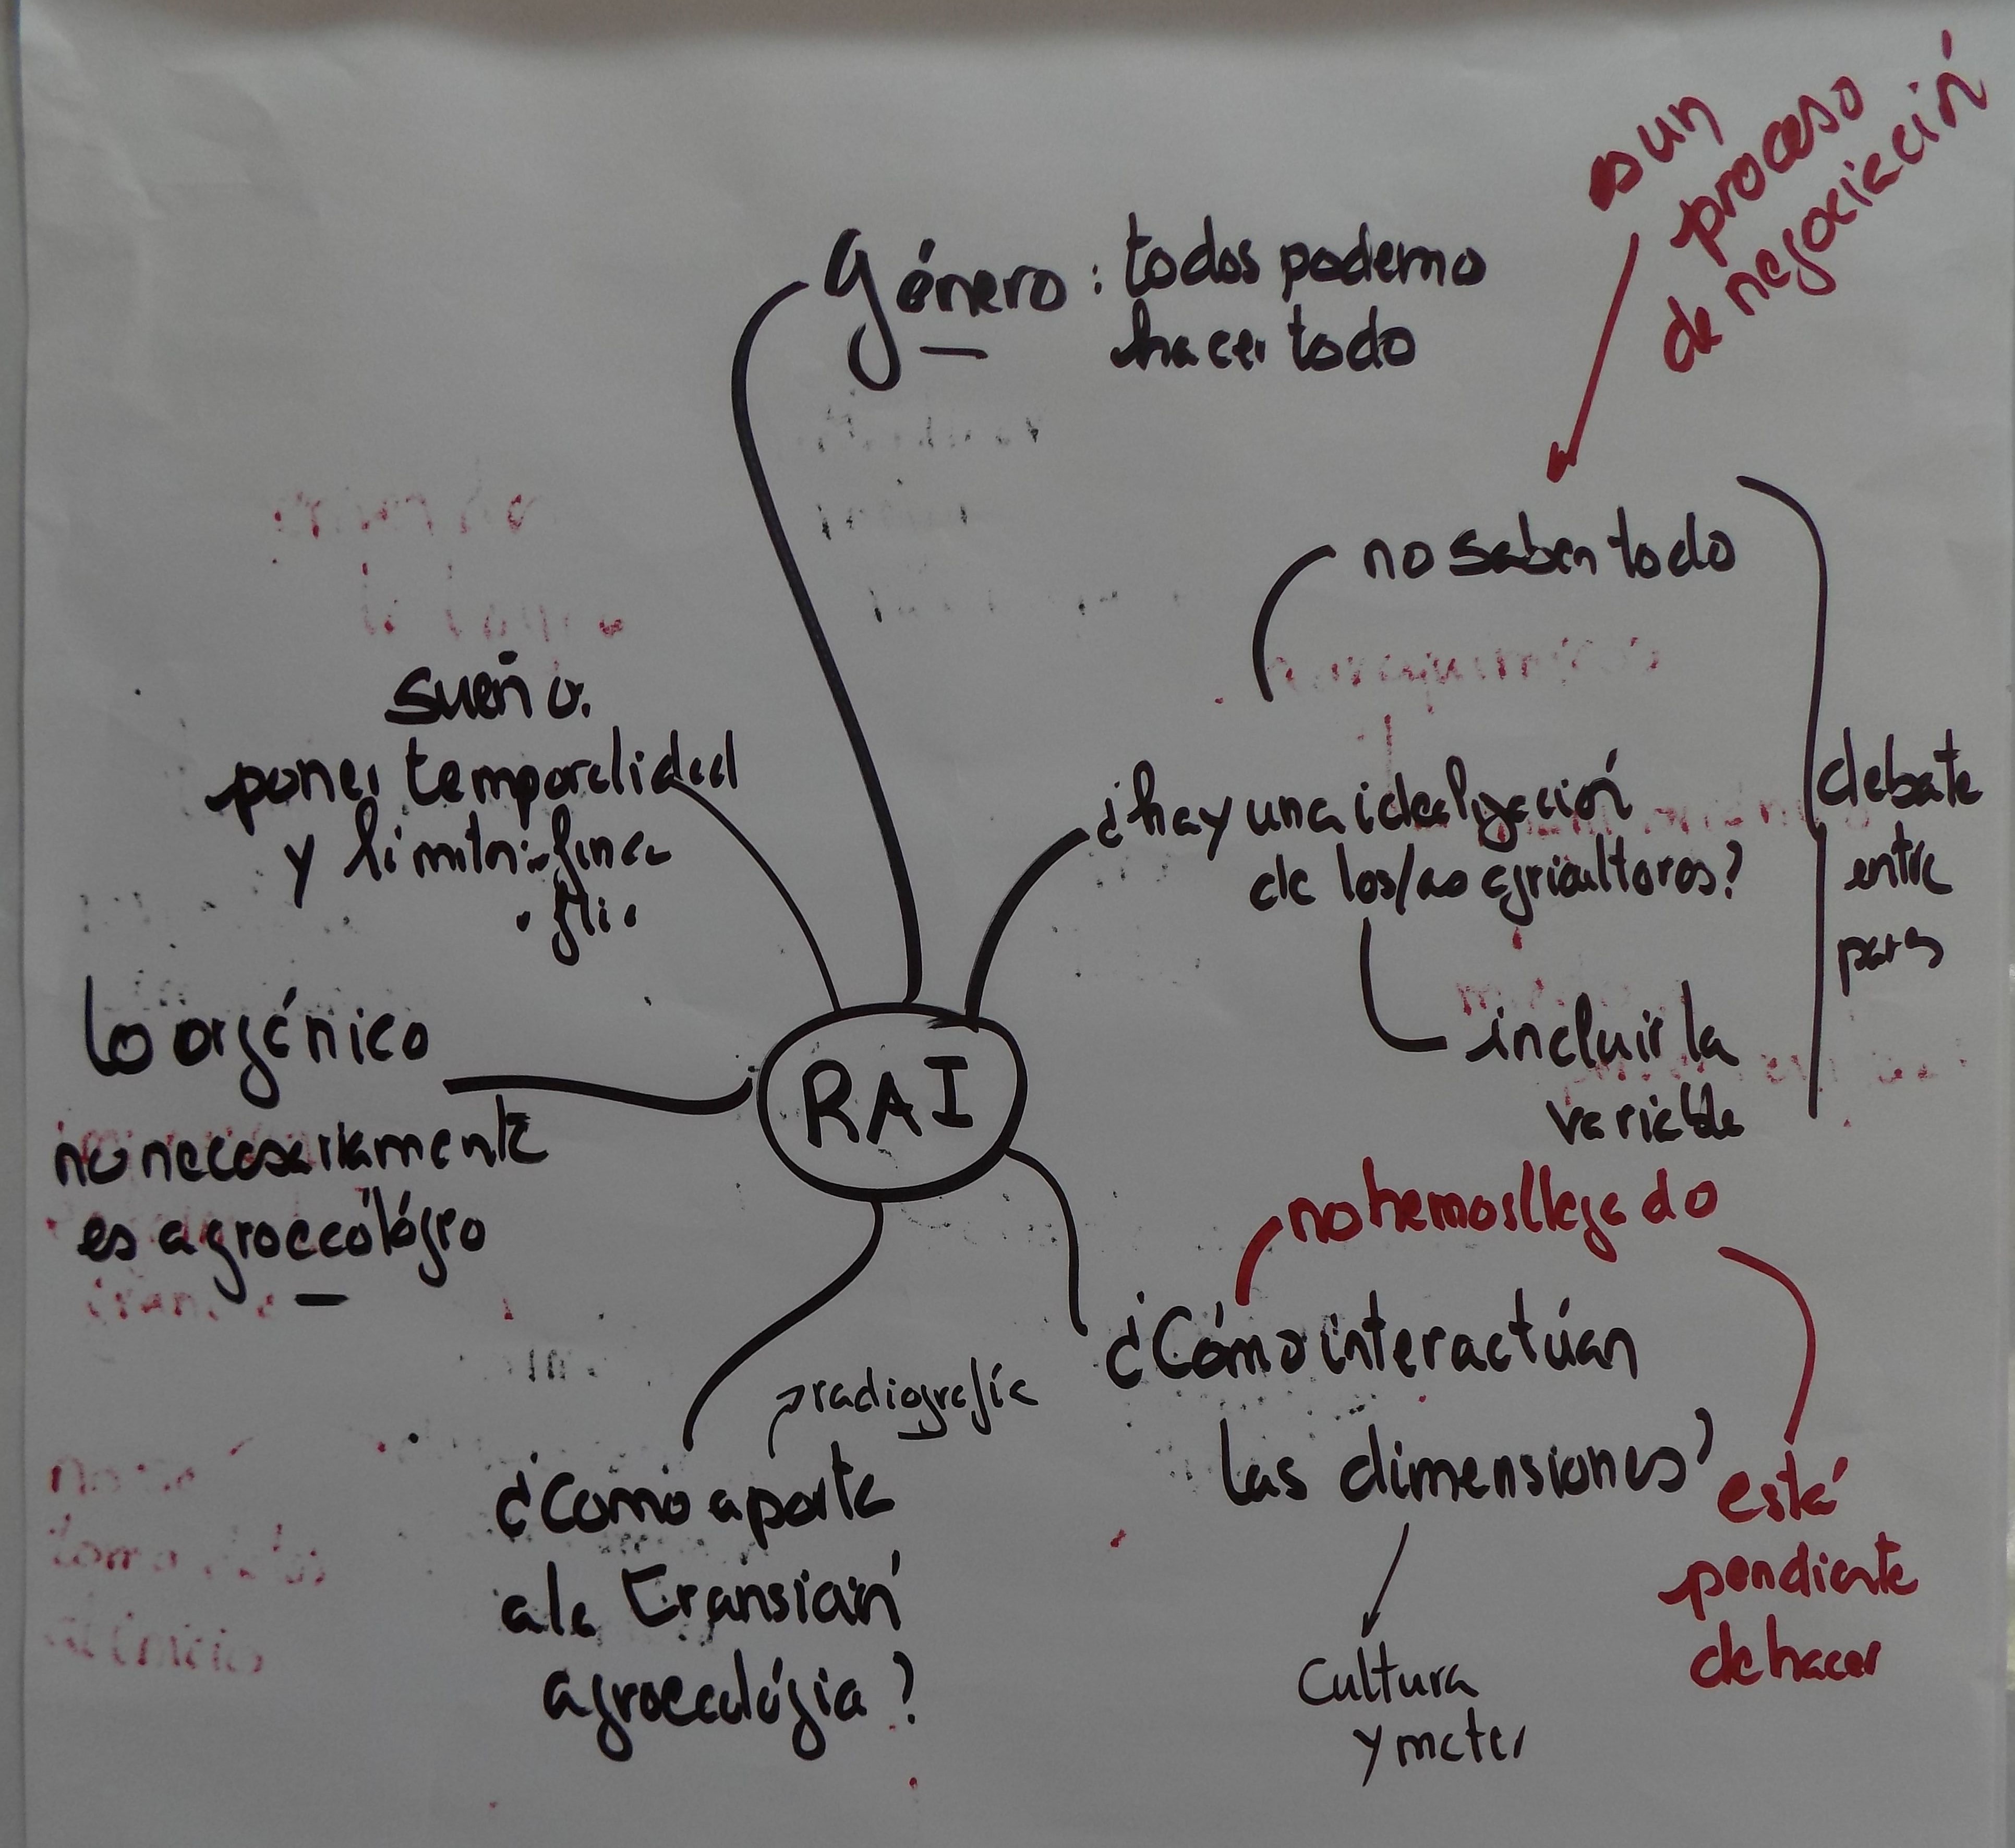 es un
proceso
de negociación
género: todos podemo
hacer todo
no saben todo
sueño.
poner temporalidad
y limitar: finca
¿hay una idealización
de los/as agricultores?
debate
entre
pares
incluir la
variable
lo orgánico
no necesariamente
es agroecológico
RAI
no hemos llegado
¿Cómo interactúan
las dimensiones?
está
pendiente
de hacer
Cultura
y meter
radiografía
¿Como aporta
a la transición
agroecológia?